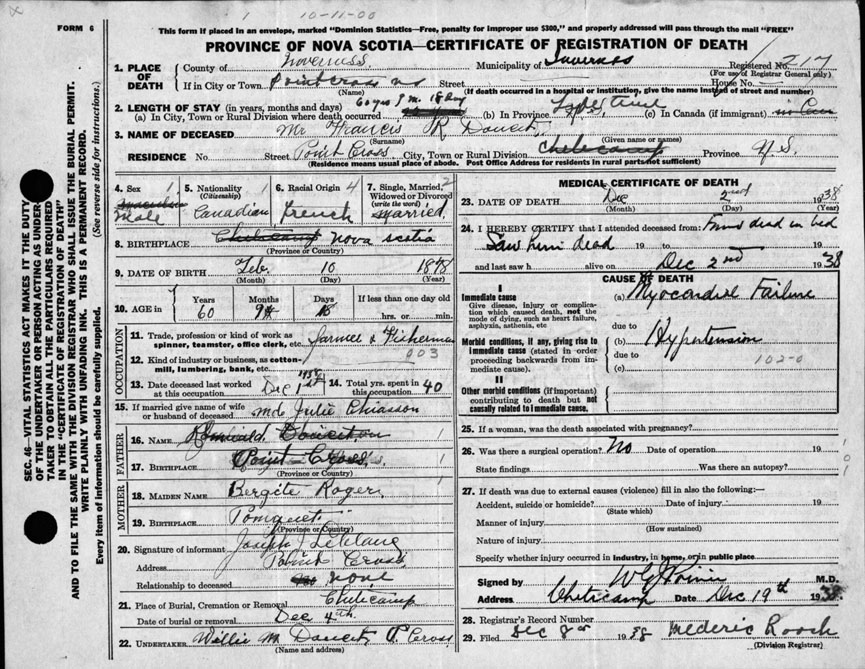 10-11-00
FORM 6
This form if placed in an envelope, marked "Dominion Statistics—Free, penalty for improper use $300," and properly addressed will pass through the mail "FREE"
PROVINCE OF NOVA SCOTIA—CERTIFICATE OF REGISTRATION OF DEATH
1. PLACE OF DEATH
County of Inverness Municipality of Inverness Registered No. 217
(For use of Registrar General only)
If in City or Town Point Cross N S Street House No.
(Name) (If death occurred in a hospital or institution, give the name instead of street and number)
2. LENGTH OF STAY (in years, months and days) 60 yrs 9 m. 18 day
(a) In City, Town or Rural Division where death occurred (b) In Province Life time N.S. (c) In Canada (if immigrant) in Can
3. NAME OF DECEASED Mr Francis R Doucet
(Surname) (Given name or names)
RESIDENCE No. Street Point Cross City, Town or Rural Division Chetecamp Province N.S.
(Residence means usual place of abode. Post Office Address for residents in rural parts not sufficient)
4. Sex 1 5. Nationality 1 6. Racial Origin 4 7. Single, Married, 2
(Citizenship) Widowed or Divorced
(write the word)
male Canadian french married
8. BIRTHPLACE Chetecamp nova scotia
(Province or Country)
9. DATE OF BIRTH Feb. 10 1878
(Month) (Day) (Year)
10. AGE in Years Months Days If less than one day old
60 9 hrs. or min.
OCCUPATION
11. Trade, profession or kind of work as
spinner, teamster, office clerk, etc. farmer & Fisherman
12. Kind of industry or business, as cotton-
mill, lumbering, bank, etc. 003
13. Date deceased last worked
at this occupation Dec 1st 1938 14. Total yrs. spent in
this occupation 40
15. If married give name of wife
or husband of deceased md Julie Chiasson
FATHER
16. NAME Doucet
17. BIRTHPLACE Point Cross
(Province or Country)
MOTHER
18. MAIDEN NAME Bergete Roger
19. BIRTHPLACE Pomquet
(Province or Country)
20. Signature of informant Joseph Leblanc
Address Point Cross
Relationship to deceased none
21. Place of Burial, Cremation or Removal Chetecamp
Date of burial or removal Dec 4th
22. UNDERTAKER Willie M Doucet P. Cross
(Name and address)
MEDICAL CERTIFICATE OF DEATH
23. DATE OF DEATH Dec 2nd 1938
(Month) (Day) (Year)
24. I HEREBY CERTIFY that I attended deceased from: Found dead in bed
Saw him dead 19 to 19
and last saw h alive on Dec 2nd 1938
CAUSE OF DEATH
I
Immediate cause (a) Myocardial Failure
Give disease, injury or complica-
tion which caused death, not the
mode of dying, such as heart failure,
asphyxia, asthenia, etc
due to
Morbid conditions, if any, giving rise to (b) Hypertension
immediate cause (stated in order
proceeding backwards from im-
mediate cause).
due to
(c) 102-0
II
Other morbid conditions (if important)
contributing to death but not
causally related to immediate cause.
25. If a woman, was the death associated with pregnancy?
26. Was there a surgical operation? No Date of operation 19
State findings Was there an autopsy?
27. If death was due to external causes (violence) fill in also the following:—
Accident, suicide or homicide? Date of injury 19
(State which)
Manner of injury
(How sustained)
Nature of injury
Specify whether injury occurred in Industry, in home, or in public place
Signed by M.D.
Address Chetecamp Date Dec 19th 1938
28. Registrar's Record Number
29. Filed Dec 8 1938 Mederic Roach
(Division Registrar)
SEC. 46—VITAL STATISTICS ACT MAKES IT THE DUTY
OF THE UNDERTAKER OR PERSON ACTING AS UNDER-
TAKER TO OBTAIN ALL THE PARTICULARS REQUIRED
IN THE "CERTIFICATE OF REGISTRATION OF DEATH"
AND TO FILE THE SAME WITH THE DIVISION REGISTRAR WHO SHALL ISSUE THE BURIAL PERMIT.
WRITE PLAINLY WITH UNFADING INK. THIS IS A PERMANENT RECORD.
Every item of information should be carefully supplied. (See reverse side for instructions.)